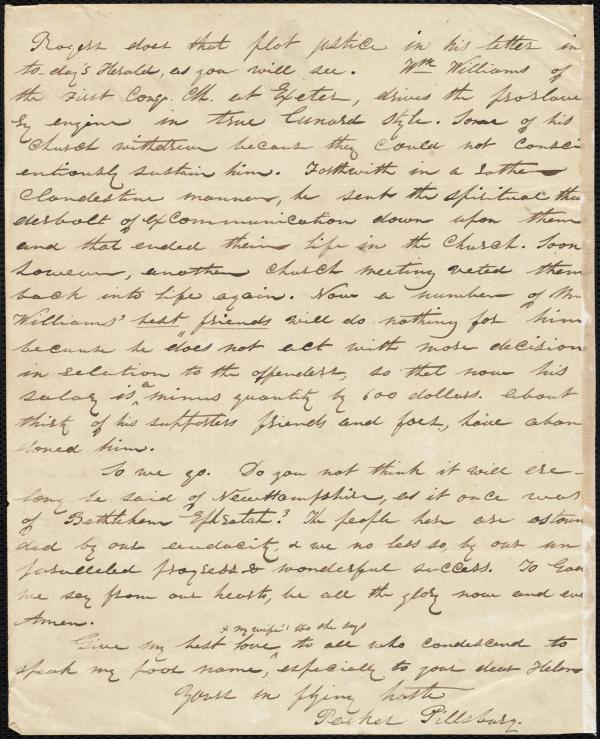 Rogers does that plot justice in his letter in
to-day's Herald, as you will see. Wm Williams of
the First Cong. Ch. at Exeter, drives the proslave
ry engine in true Cunard style. Some of his
Church withdrew because they could not consci
entiously sustain him. Forthwith in a rather
clandestine manner, he sent the spiritual thu
derbolt of excommunication down upon them
and that ended their life in the Church. Soon
however, another church meeting voted them
back into life again. Now a number of Mr
Williams' best friends will do nothing for him
because he does not act with more decision
in relation to the offenders, so that now his
salary is a minus quantity by 600 dollars. About
thirty of his supporters friends and foes, have aban
doned him.
So we go. Do you not think it will ere-
long be said of New Hampshire, as it once was
of Bethlehem Ephratah? The people here are astoun
ded by our audacity, & we no less so, by our un
paralleled progress & wonderful success. To God
we say from our hearts, be all the glory now and eve
Amen.
& my wife's too she says
Give my best love, to all who condescend to
speak my poor name, especially to your dear Helen
Yours in flying haste
Parker Pillsbury.